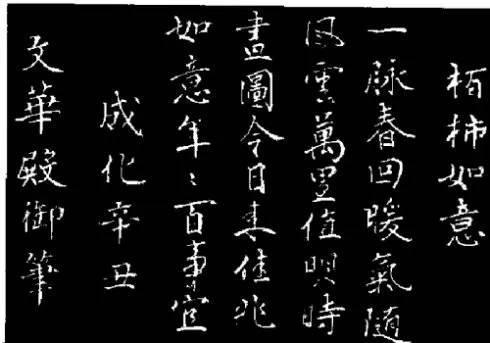 柏柿如意
一脉春回暖氣隨
风雲萬里值明時
畫圖今日来佳兆
如意年〻百事宜
成化辛丑
文華殿御筆